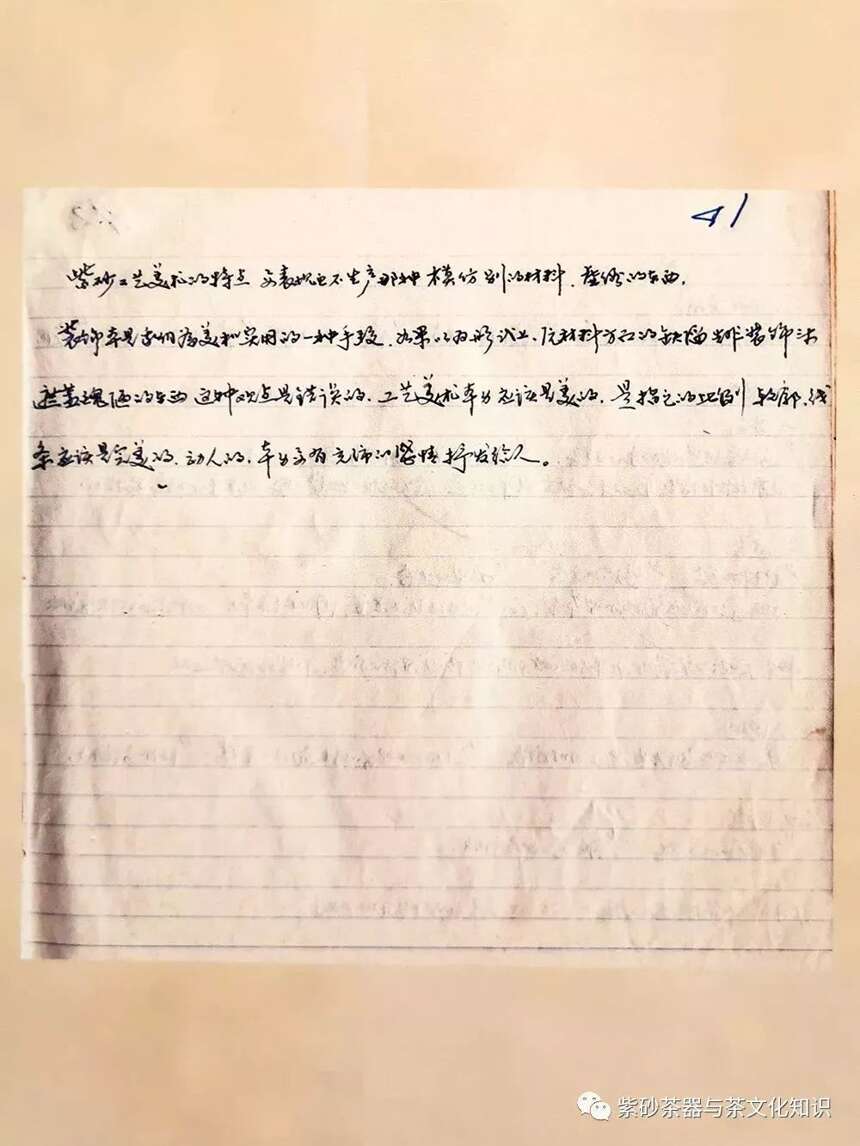 41
紫砂工艺美术的特点 要表现出不生产那种模仿别的材料、 的东西。
装饰本是我们为美和实用的一种手段，如果以为形式上、陀材料方面的缺陷 装饰法
遮盖瑰陋的东西 这种观点是错误的。工艺美术本身应该是美的，是指它的比例 轮廓、线
条应该是完美的、动人的，本身要有充沛的 情抒发给人。
紫砂茶器与茶文化知识